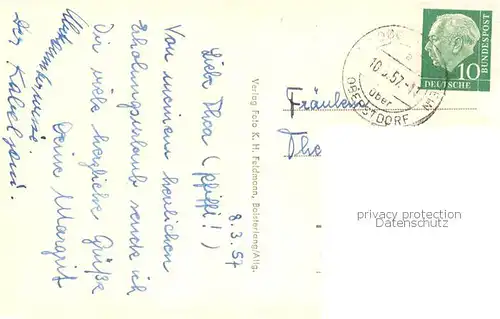 8.3.57
Liebe Thea (pfiffi!)
Von meinem herrlichen
Erholungsurlaub sende ich
Dir viele herzliche Grüße
Deine Margrit
Der Kabeljau!
Verlag Foto K. H. Feldmann, Bolsterlang/Allg.
10.3.57
über
OBERSTDORF
10
DEUTSCHE
BUNDESPOST
Fräulein
The
privacy protection
Datenschutz